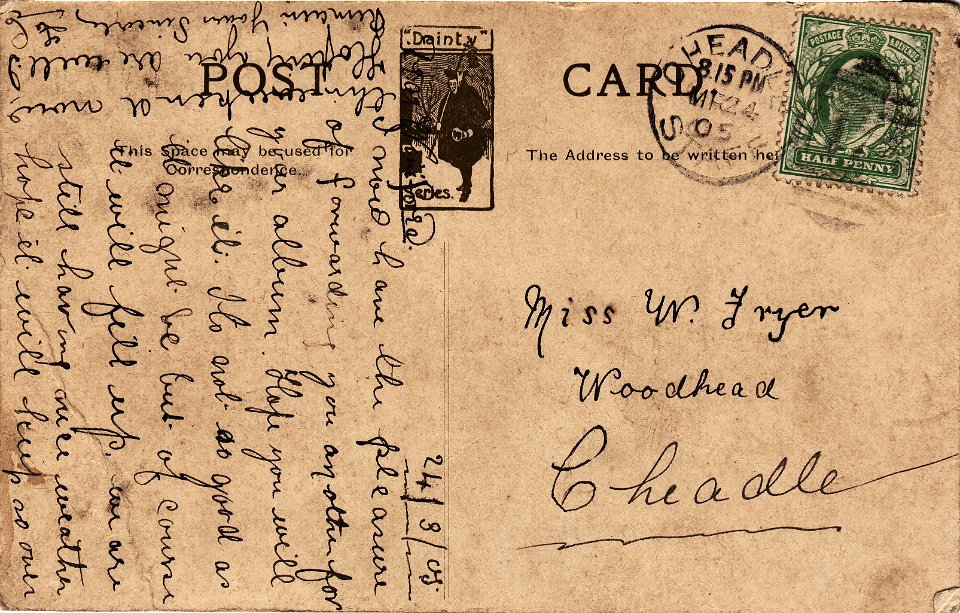 POST CARD
"Dainty"
Series.
This space may be used for
Correspondence.
The Address to be written
CHEADLE
8.15 PM
MR 24
05
POSTAGE
HALF PENNY
24/3/05
I now have the pleasure
of forwarding you another for
your album. Hope you will
like it. Its not as good as
it might be but of course
it will fill up. we are
still having nice weather
hope it will keep so over
weekend now
Hoping you are well
Remain Yours Sincerely
Miss W. Fryer
Woodhead
Cheadle